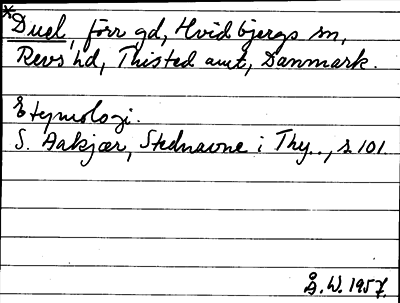 *Duel, förr gd, Hvidbjergs sn,
Revs hd, Thisted amt, Danmark.
Etymologi.
S. Aakjær, Stednavne i Thy.., s. 101
Å.W. 1957.